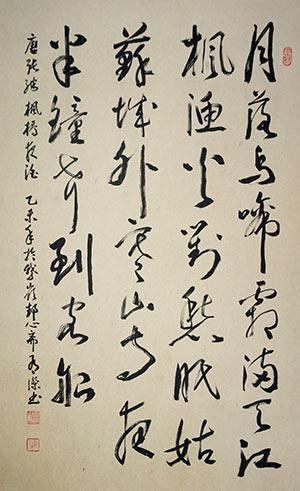 月落烏啼霜滿天江
楓漁火對愁眠姑
蘇城外寒山寺夜
半鐘聲到客船
唐張繼楓橋夜泊 乙未年於 書